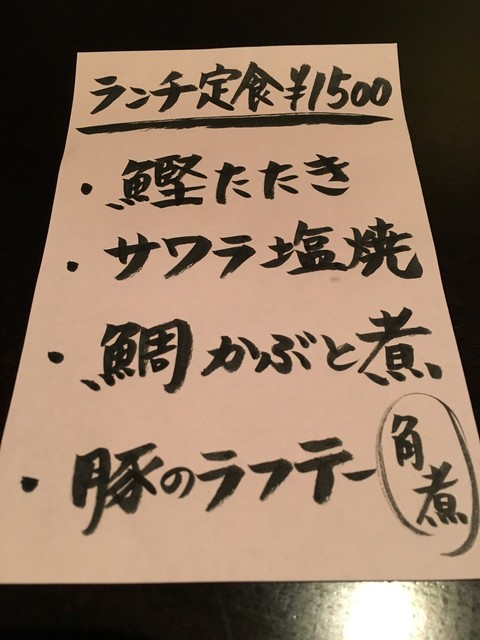 ランチ定食¥1500
・鰹たたき
・サワラ塩焼
・鯛かぶと煮
・豚のラフテー 角煮